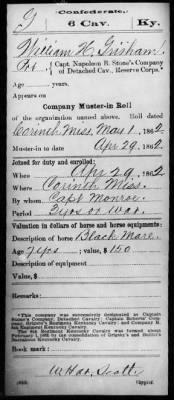 G Confederate.
6 Cav. Ky.
William H. Grisham
Pvt., Capt. Napoleon B. Stone's Company
of Detached Cav., Reserve Corps.*
Age years.
Appears on
Company Muster-in Roll
of the organization named above. Muster roll dated
Corinth Miss, May 1, 1862
Muster-in to date Apr 29, 1862
Joined for duty and enrolled:
When Apr 29, 1862
Where Corinth Miss.
By whom Capt Monroe
Period 3 yrs or war.
Valuation in dollars of horse and horse equipments:
Description of horse Black Mare.
7 yrs ; value, $150
Description of equipment
Value, $
Remarks:
*This company was successively designated as Captain
Stone's Company, Detached Cavalry; Captain Roberts' Company,
Grigsby's Regiment Kentucky Cavalry; and Company
6th Regiment Kentucky Cavalry.
The 6th Regiment Kentucky Cavalry was formed about
February 1, 1863, by the consolidation of Grigsby's and Butler's
Battalions Kentucky Cavalry.
Book mark:
Copyist.